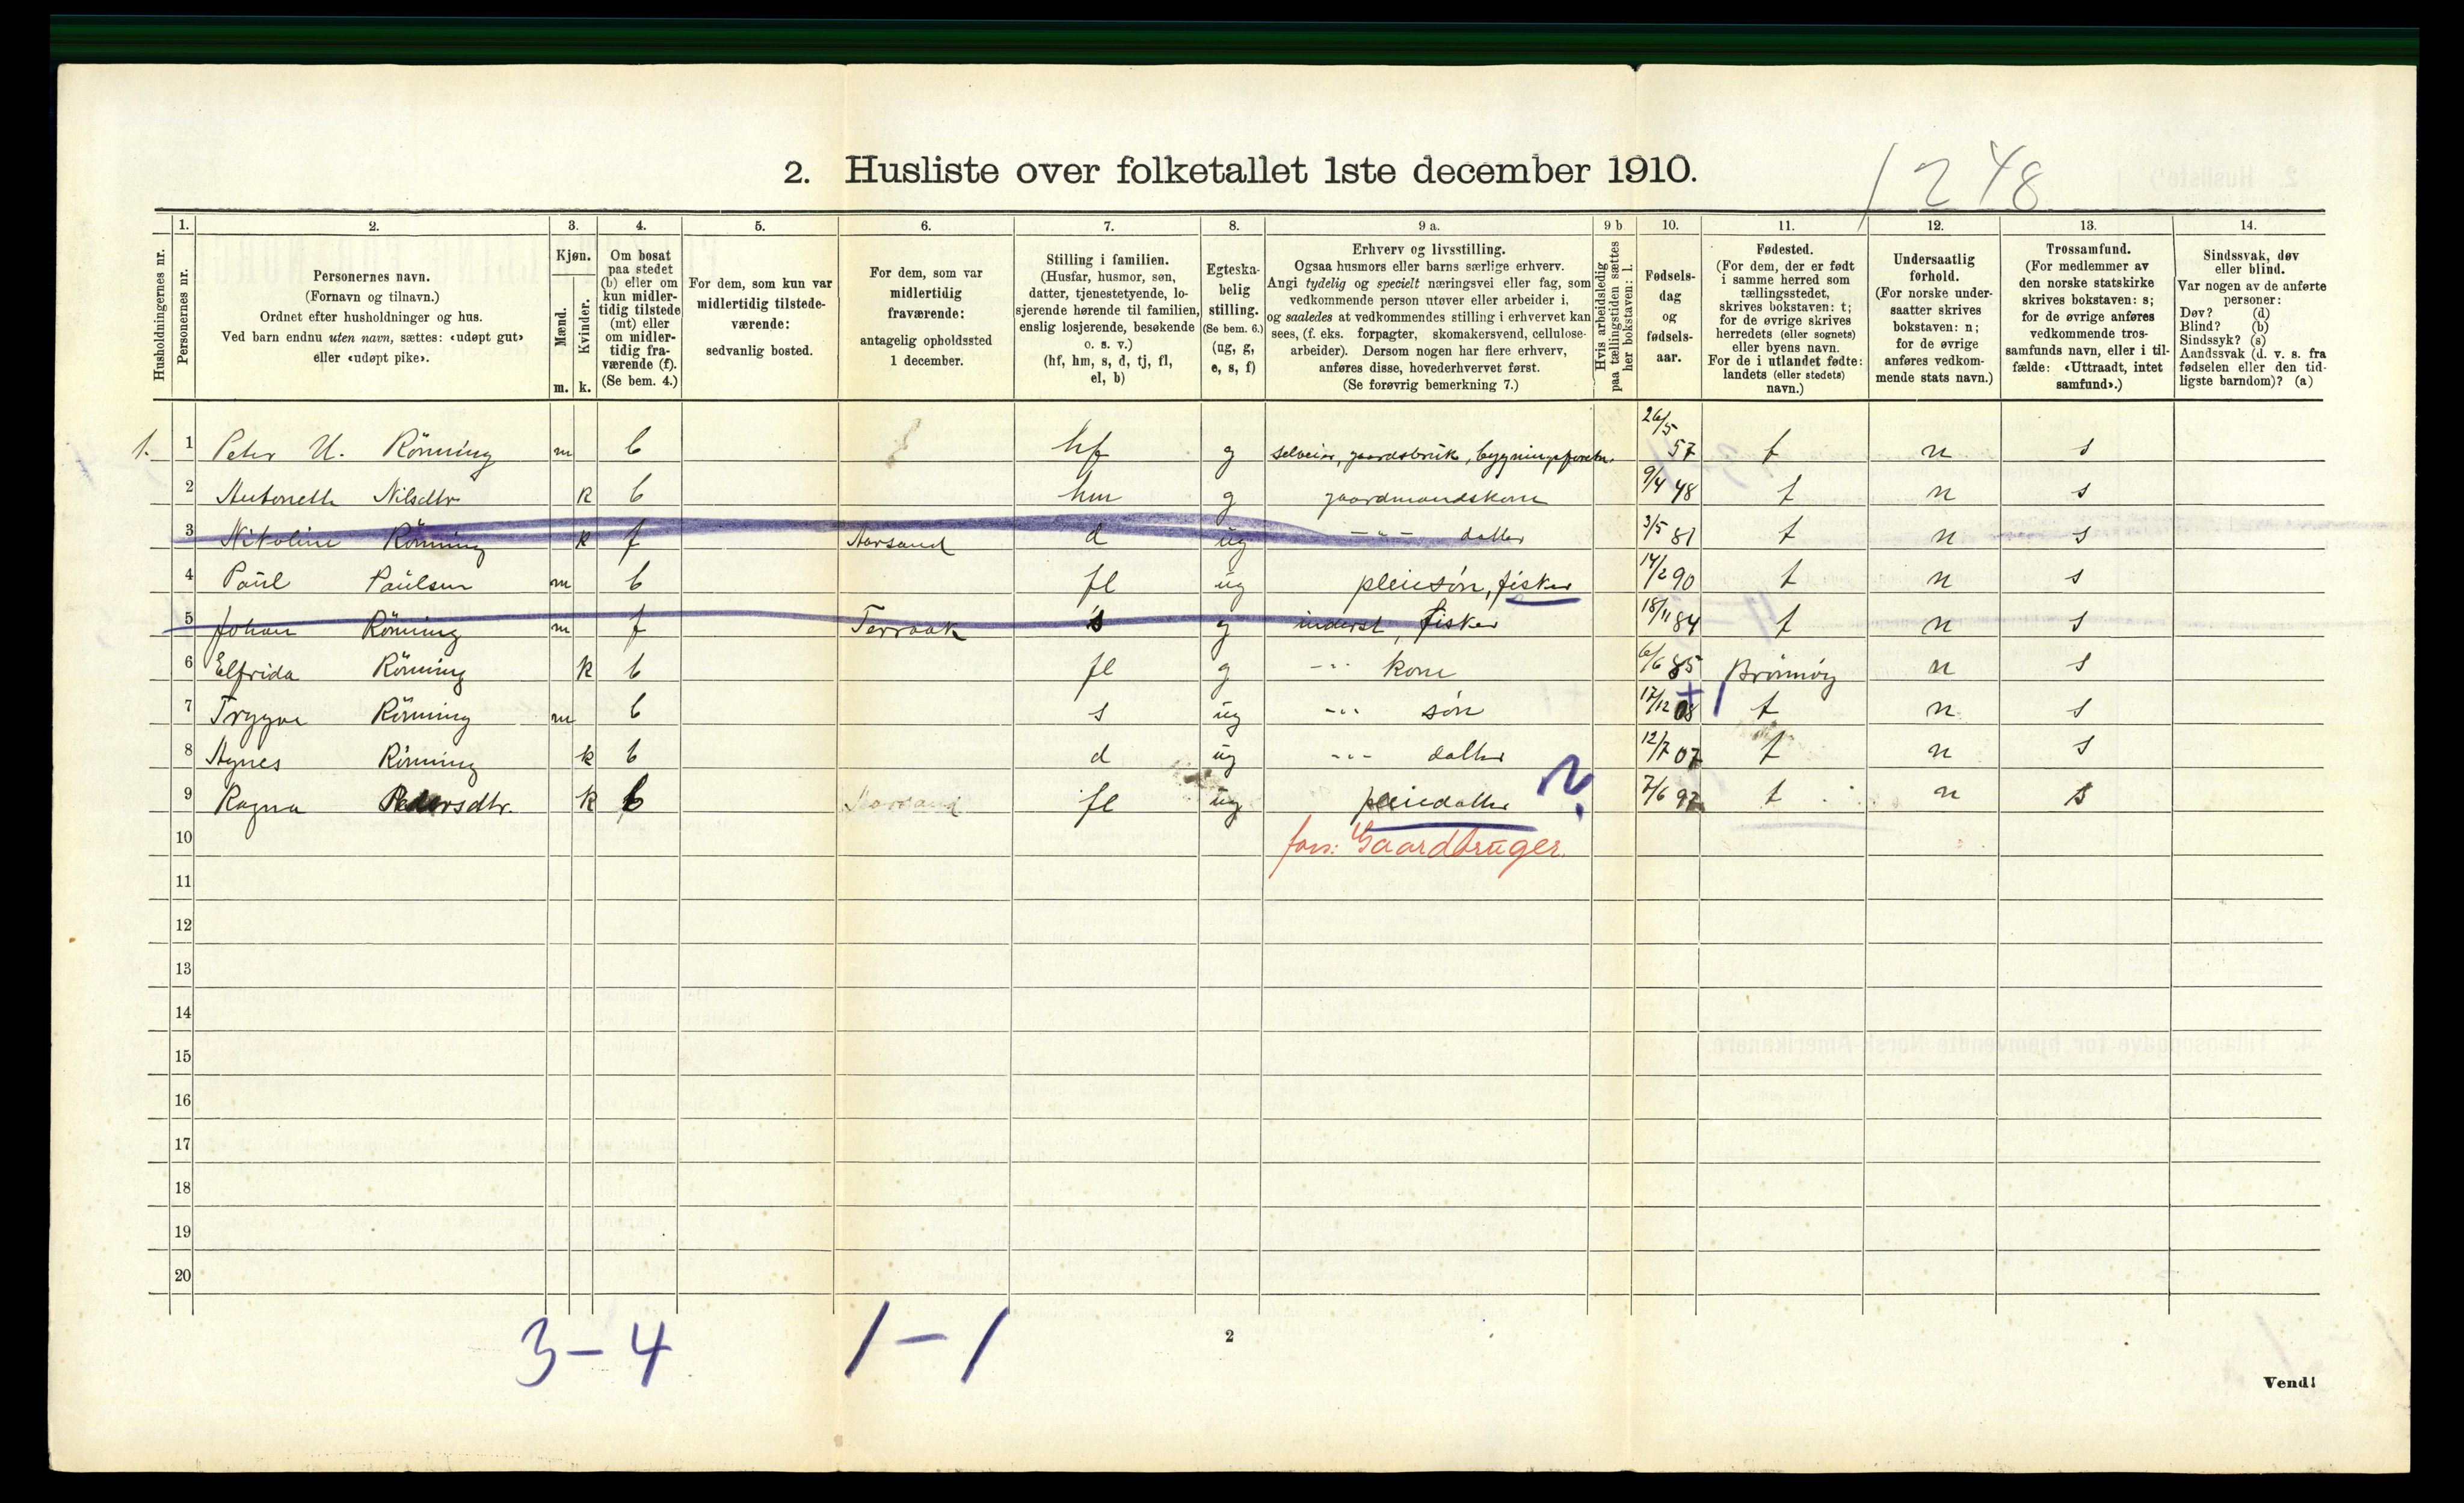 2. Husliste over folketallet 1ste december 1910.
1248
Husholdningernes nr.
1.
Personernes nr.
2.
Personernes navn.
(Fornavn og tilnavn.)
Ordnet efter husholdninger og hus.
Ved barn endnu uten navn, sættes: «udøpt gut»
eller «udøpt pike».
3.
Kjøn.
Mænd.
Kvinder.
m. k.
4.
Om bosat
paa stedet
(b) eller om
kun midler-
tidig tilstede
(mt) eller
om midler-
tidig fra-
værende (f).
(Se bem. 4.)
5.
For dem, som kun var
midlertidig tilstede-
værende:
sedvanlig bosted.
6.
For dem, som var
midlertidig
fraværende:
antagelig opholdssted
1 december.
7.
Stilling i familien.
(Husfar, husmor, søn,
datter, tjenestetyende, lo-
sjerende hørende til familien,
enslig losjerende, besøkende
o. s. v.)
(hf, hm, s, d, tj, fl,
el, b)
8.
Egteska-
belig
stilling.
(Se bem. 6.)
(ug, g,
e, s, f)
9 a.
Erhverv og livsstilling.
Ogsaa husmors eller barns særlige erhverv.
Angi tydelig og specielt næringsvei eller fag, som
vedkommende person utøver eller arbeider i,
og saaledes at vedkommendes stilling i erhvervet kan
sees, (f. eks. forpagter, skomakersvend, cellulose-
arbeider). Dersom nogen har flere erhverv,
anføres disse, hovederhvervet først.
(Se forøvrig bemerkning 7.)
9 b
Hvis arbeidsledig
paa tællingstiden sættes
her bokstaven: l.
10.
Fødsels-
dag
og
fødsels-
aar.
11.
Fødested.
(For dem, der er født
i samme herred som
tællingsstedet,
skrives bokstaven: t;
for de øvrige skrives
herredets (eller sognets)
eller byens navn.
For de i utlandet fødte:
landets (eller stedets)
navn.)
12.
Undersaatlig
forhold.
(For norske under-
saatter skrives
bokstaven: n;
for de øvrige
anføres vedkom-
mende stats navn.)
13.
Trossamfund.
(For medlemmer av
den norske statskirke
skrives bokstaven: s;
for de øvrige anføres
vedkommende tros-
samfunds navn, eller i til-
fælde: «Uttraadt, intet
samfund».)
14.
Sindssvak, døv
eller blind.
Var nogen av de anførte
personer:
Døv? (d)
Blind? (b)
Sindssyk? (s)
Aandssvak (d. v. s. fra
fødselen eller den tid-
ligste barndom)? (a)
1. 1 Peter U. Rönning m b hf g selveier, gaardsbruk, 26/5 57 t n s
2 Antonette Nilsdtr k b hm g gaardmandskone 9/4 48 t n s
3 Nikoline Rönning k f Aarsand d ug -"- datter 3/5 81 t n s
4 Paul Paulsen m b fl ug pleiesön, fisker 14/2 90 t n s
5 Johan Rönning m f Terraak s g inderst, fisker 18/11 84 t n s
6 Elfrida Rönning k b fl g -"- kone 6/6 85 Brönnöy n s
7 Trygve Rönning m b s ug -"- sön 17/12 08 t n s
8 Agnes Rönning k b d ug -"- datter 12/7 07 t n s
9 Ragna Pedersdtr. k b fl ug pleiedatter ? 7/6 97 t n s
10 fors: Gaardbruger.
11
12
13
14
15
16
17
18
19
20
3-4 1-1
2
Vend!